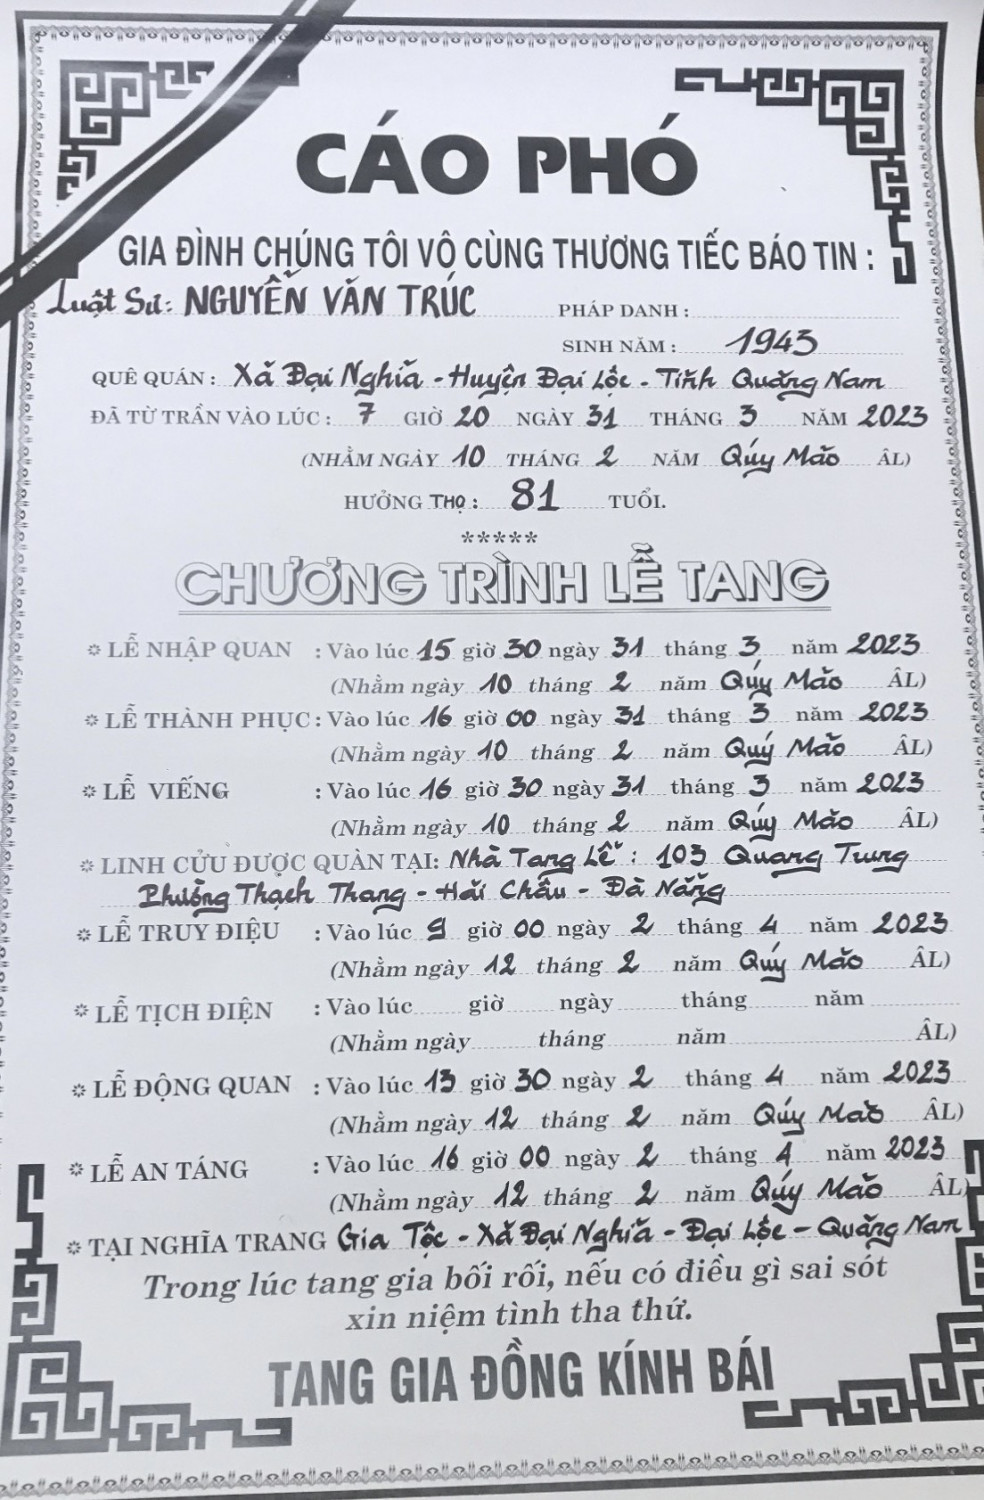 CÁO PHÓ
GIA ĐÌNH CHÚNG TÔI VÔ CÙNG THƯƠNG TIẾC BÁO TIN :
Luật Sư: NGUYỄN VĂN TRÚC PHÁP DANH :
SINH NĂM : 1943
QUÊ QUÁN : Xã Đại Nghĩa - Huyện Đại Lộc - Tỉnh Quảng Nam
ĐÃ TỪ TRẦN VÀO LÚC : 7 GIỜ 20 NGÀY 31 THÁNG 3 NĂM 2023
(NHẰM NGÀY 10 THÁNG 2 NĂM Qúy Mão ÂL)
HƯỞNG THỌ : 81 TUỔI.
*****
CHƯƠNG TRÌNH LỄ TANG
LỄ NHẬP QUAN : Vào lúc 15 giờ 30 ngày 31 tháng 3 năm 2023
(Nhằm ngày 10 tháng 2 năm Qúy Mão ÂL)
LỄ THÀNH PHỤC : Vào lúc 16 giờ 00 ngày 31 tháng 3 năm 2023
(Nhằm ngày 10 tháng 2 năm Quý Mão ÂL)
LỄ VIẾNG : Vào lúc 16 giờ 30 ngày 31 tháng 3 năm 2023
(Nhằm ngày 10 tháng 2 năm Qúy Mão ÂL)
LINH CỬU ĐƯỢC QUÀN TẠI: Nhà Tang Lễ : 103 Quang Trung
Phường Thạch Thang - Hải Châu - Đà Nẵng
LỄ TRUY ĐIỆU : Vào lúc 9 giờ 00 ngày 2 tháng 4 năm 2023
(Nhằm ngày 12 tháng 2 năm Qúy Mão ÂL)
LỄ TỊCH ĐIỆN : Vào lúc giờ ngày tháng năm
(Nhằm ngày tháng năm ÂL)
LỄ ĐỘNG QUAN : Vào lúc 13 giờ 30 ngày 2 tháng 4 năm 2023
(Nhằm ngày 12 tháng 2 năm Qúy Mão ÂL)
LỄ AN TÁNG : Vào lúc 16 giờ 00 ngày 2 tháng 4 năm 2023
(Nhằm ngày 12 tháng 2 năm Qúy Mão ÂL)
TẠI NGHĨA TRANG Gia Tộc - Xã Đại Nghĩa - Đại Lộc - Quảng Nam
Trong lúc tang gia bối rối, nếu có điều gì sai sót
xin niệm tình tha thứ.
TANG GIA ĐỒNG KÍNH BÁI